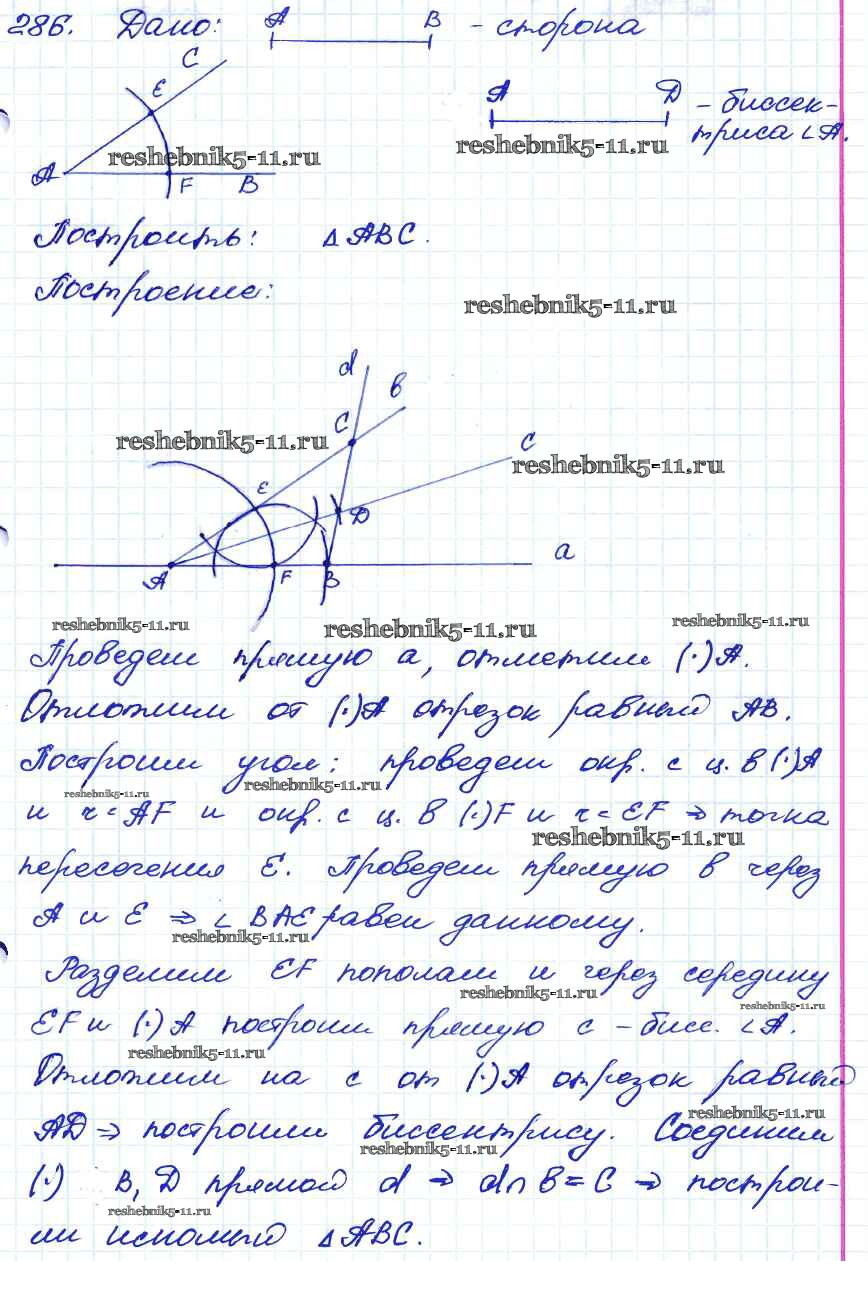 286. Дано: A B - сторона
C
E
A D - биссек-
триса ∠A.
reshebnik5-11.ru reshebnik5-11.ru
A F B
Построить: △ABC.
Построение:
reshebnik5-11.ru
d
b
C
reshebnik5-11.ru
c
reshebnik5-11.ru
E
D
a
A F B
reshebnik5-11.ru reshebnik5-11.ru reshebnik5-11.ru
Проведем прямую a, отметим (·)A.
Отложим от (·)A отрезок равный AB.
Построим угол: проведем окр. с ц. в (·)A
reshebnik5-11.ru reshebnik5-11.ru
и r = AF и окр. с ц. в (·)F и r = EF ⇒ точка
reshebnik5-11.ru
пересечения E. Проведем прямую b через
A и E ⇒ ∠BAE равен данному.
reshebnik5-11.ru
Разделим EF пополам и через середину
reshebnik5-11.ru reshebnik5-11.ru
EF и (·)A построим прямую c - бисс. ∠A.
reshebnik5-11.ru
Отложим на c от (·)A отрезок равный
reshebnik5-11.ru
AD ⇒ построим биссектрису. Соединим
reshebnik5-11.ru
(·) B, D прямой d ⇒ d∩b = C ⇒ построи-
reshebnik5-11.ru
ли искомый △ABC.